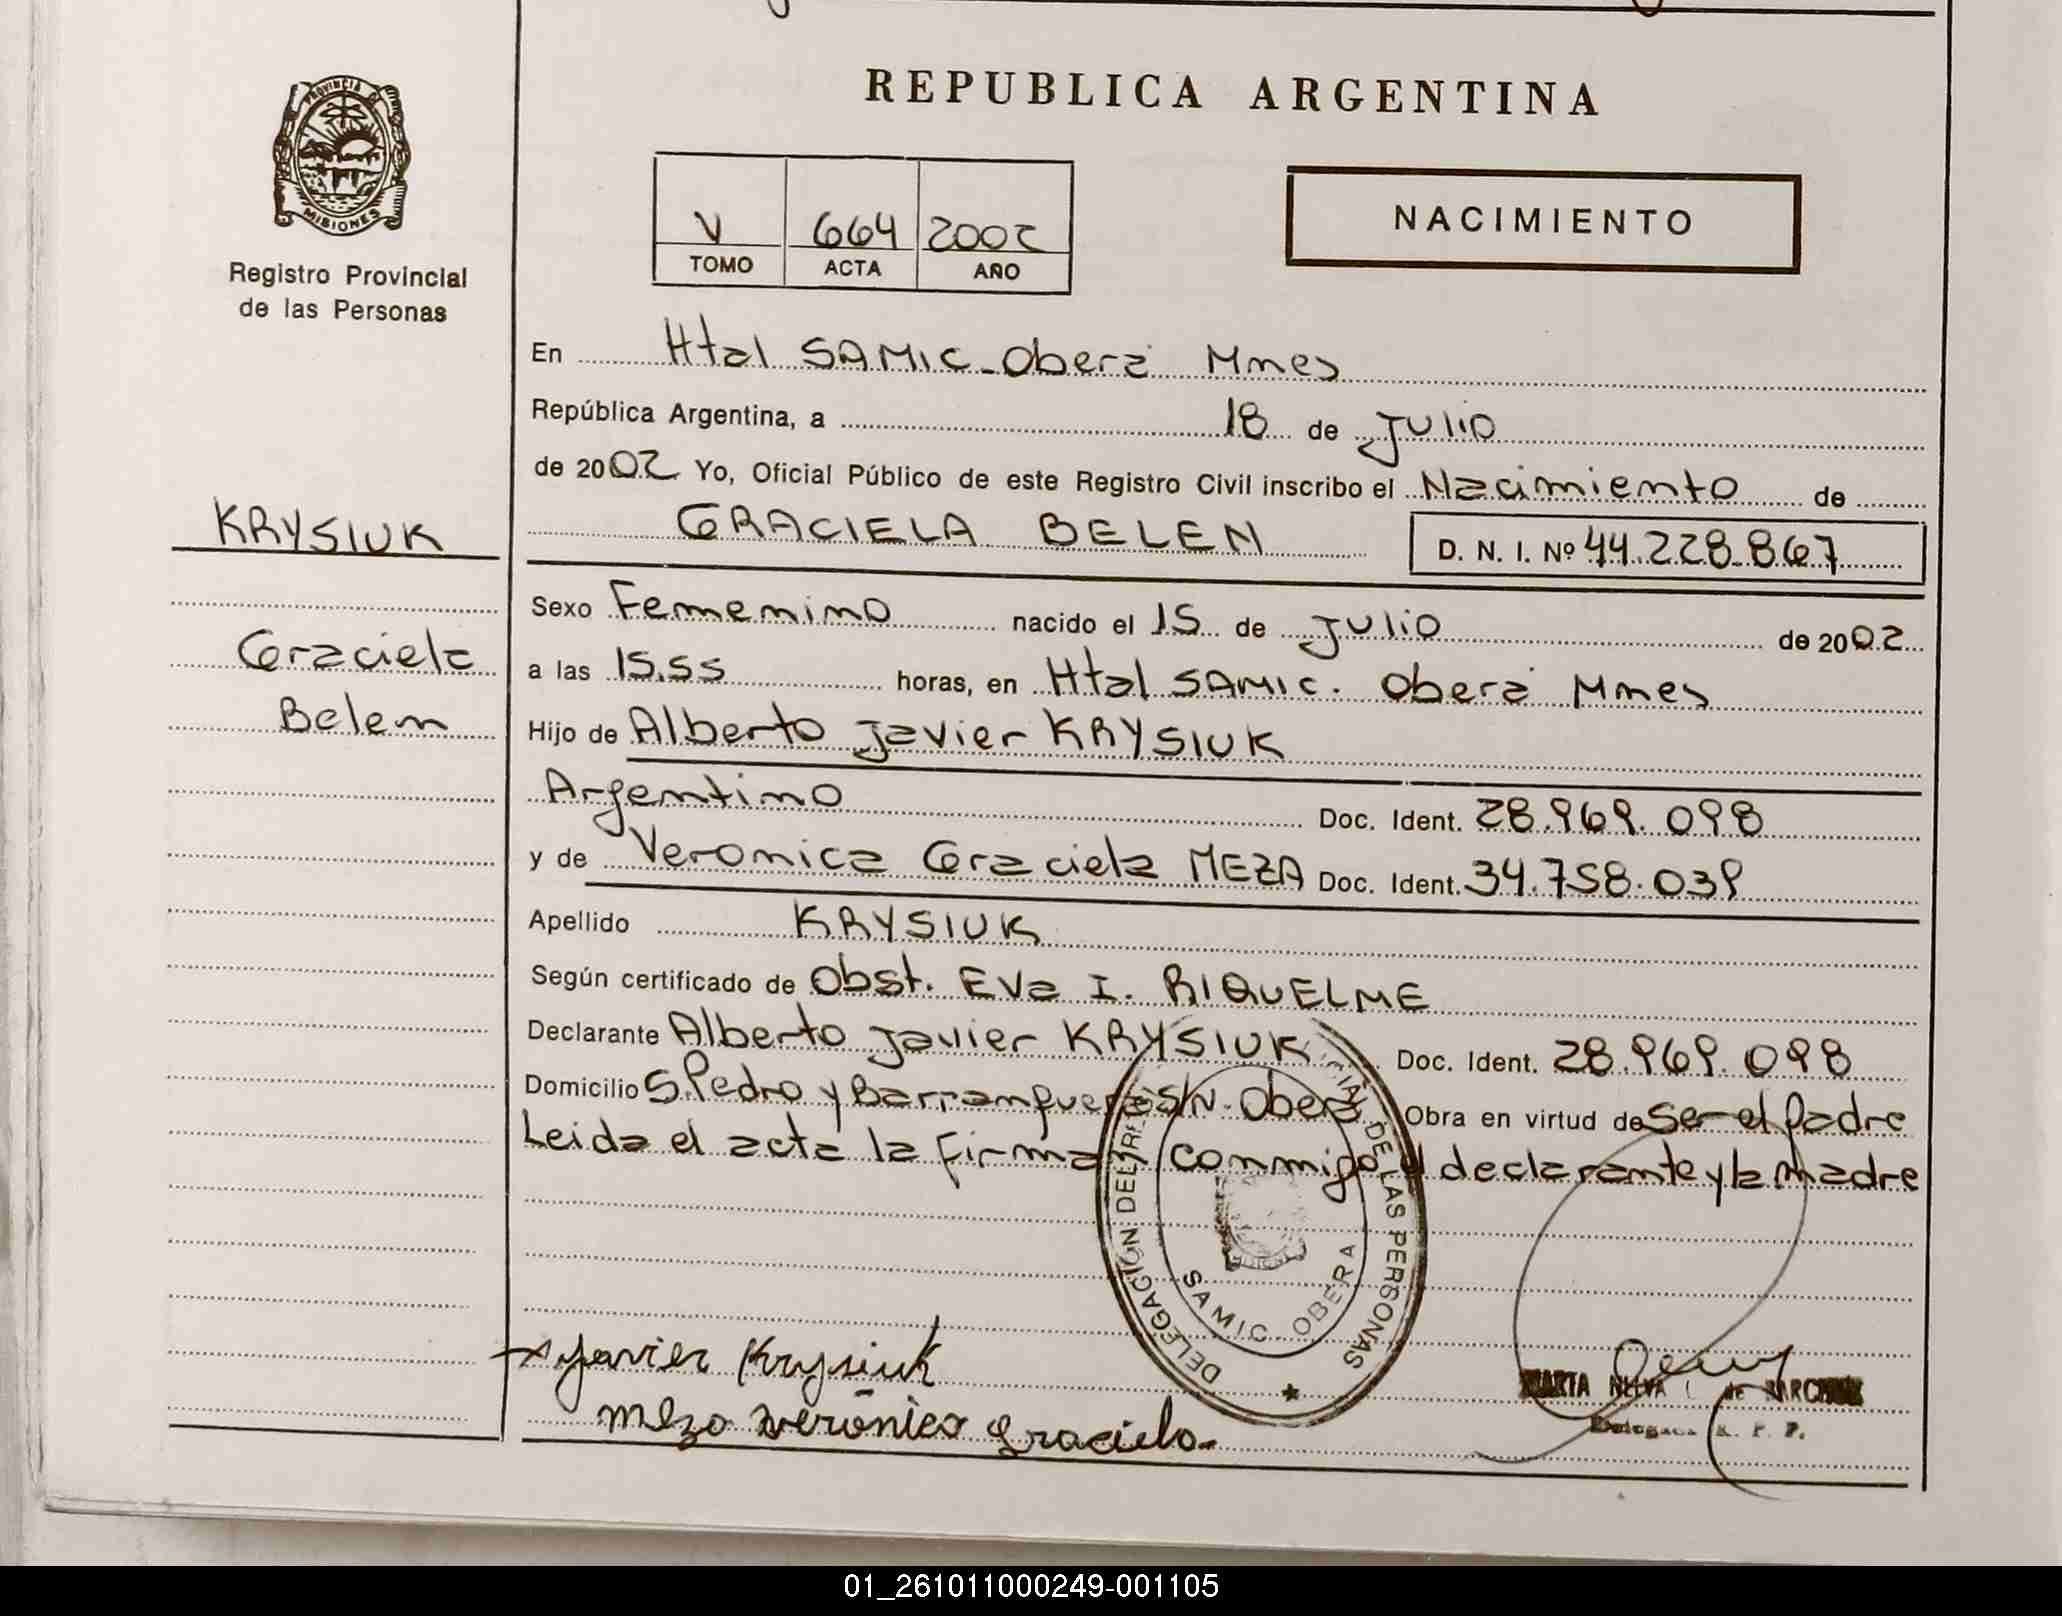 REPUBLICA ARGENTINA
PROVINCIA DE
MISIONES
Registro Provincial
de las Personas
V 664 2002
TOMO ACTA AÑO
NACIMIENTO
En Htal SAMIC - Oberá Mnes
República Argentina, a 18 de Julio
de 2002 Yo, Oficial Público de este Registro Civil inscribo el Nacimiento de
GRACIELA BELEN D. N. I. Nº 44.228.867
KRYSIUK
Graciela
Belen
Sexo Femenino nacido el 15 de Julio de 2002
a las 15.55 horas, en Htal SAMIC. Oberá Mnes
Hijo de Alberto Javier KRYSIUK
Argentino Doc. Ident. 28.969.098
y de Veronica Graciela MEZA Doc. Ident. 34.758.039
Apellido KRYSIUK
Según certificado de Obst. Eva I. RIQUELME
Declarante Alberto Javier KRYSIUK Doc. Ident. 28.969.098
Domicilio S. Pedro y S/N. Oberá Obra en virtud de Ser el padre
Leida el acta la Firma conmigo el declarante y la madre
DELEGACION DEL DE LAS PERSONAS
SAMIC - OBERA
Javier Krysiuk
Meza Verónica Graciela
MARTA de
Delegada R. P. P.
01_261011000249-001105